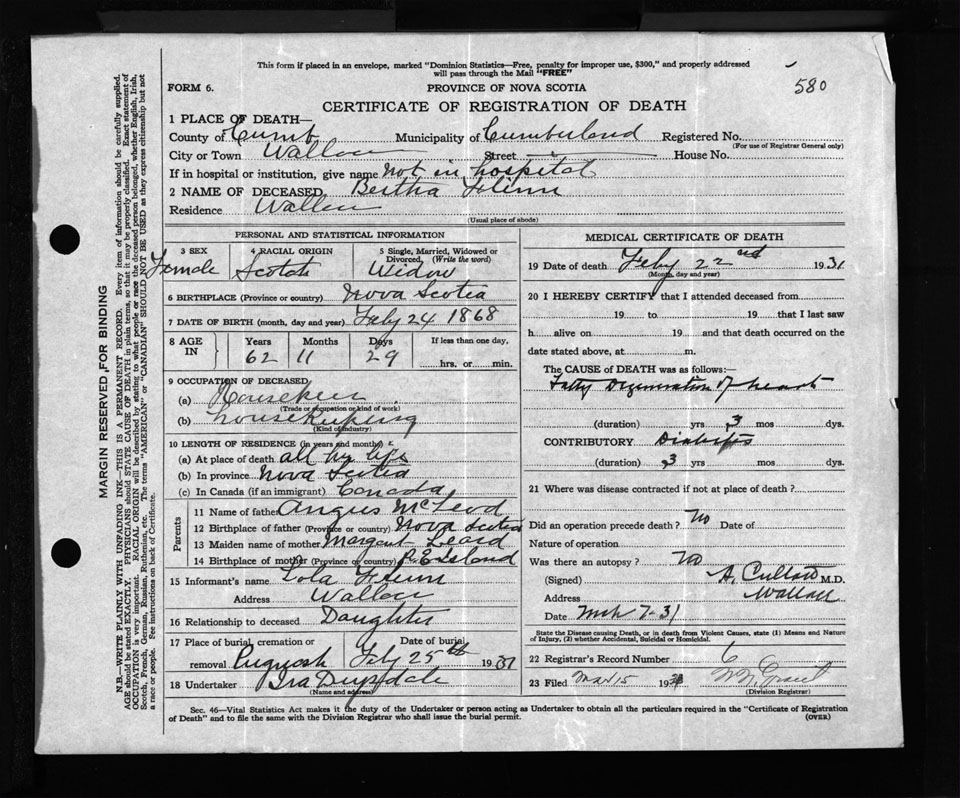 This form if placed in an envelope, marked "Dominion Statistics—Free, penalty for improper use, $300," and properly addressed
will pass through the Mail "FREE"
580
FORM 6.
PROVINCE OF NOVA SCOTIA
CERTIFICATE OF REGISTRATION OF DEATH
1 PLACE OF DEATH—
County of Cumb Municipality of Cumberland Registered No.
(For use of Registrar General only)
City or Town Wallace Street House No.
If in hospital or institution, give name not in hospital
2 NAME OF DECEASED Bertha Flinn
Residence Wallace
(Usual place of abode)
PERSONAL AND STATISTICAL INFORMATION
3 SEX 4 RACIAL ORIGIN 5 Single, Married, Widowed or
Divorced. (Write the word)
Female Scotch Widow
6 BIRTHPLACE (Province or country) Nova Scotia
7 DATE OF BIRTH (month, day and year) Feby 24 1868
8 AGE IN Years Months Days If less than one day,
62 11 29 hrs. or min.
9 OCCUPATION OF DECEASED
(a)
(Trade or occupation or kind of work)
(b) housekeeping
(Kind of industry)
10 LENGTH OF RESIDENCE (in years and months)
(a) At place of death all her life
(b) In province Nova Scotia
(c) In Canada (if an immigrant) Canada
Parents
11 Name of father Angus McLeod
12 Birthplace of father (Province or country) Nova Scotia
13 Maiden name of mother Margaret Leard
14 Birthplace of mother (Province or country) P. E. Island
15 Informant's name Lola Flinn
Address Wallace
16 Relationship to deceased Daughter
17 Place of burial, cremation or Date of burial
removal Pugwash Feby 25th 1931
18 Undertaker Ira Drysdale
(Name and address)
MEDICAL CERTIFICATE OF DEATH
19 Date of death Feby 22nd 1931
(Month, day and year)
20 I HEREBY CERTIFY that I attended deceased from
19 to 19 that I last saw
h alive on 19 and that death occurred on the
date stated above, at m.
The CAUSE of DEATH was as follows:—
Fatty Degeneration of heart
(duration) yrs 3 mos dys.
CONTRIBUTORY Diabetes
(duration) 3 yrs mos dys.
21 Where was disease contracted if not at place of death?
Did an operation precede death? No Date of
Nature of operation
Was there an autopsy? No
(Signed) M.D.
Address Wallace
Date Mch 7-31
State the Disease causing Death, or in death from Violent Causes, state (1) Means and Nature
of Injury, (2) whether Accidental, Suicidal or Homicidal.
22 Registrar's Record Number 6
23 Filed Mar 15 19 Grant
(Division Registrar)
Sec. 46—Vital Statistics Act makes it the duty of the Undertaker or person acting as Undertaker to obtain all the particulars required in the "Certificate of Registration
of Death" and to file the same with the Division Registrar who shall issue the burial permit.
(OVER)
MARGIN RESERVED FOR BINDING
N.B.—WRITE PLAINLY WITH UNFADING INK—THIS IS A PERMANENT RECORD. Every item of information should be carefully supplied.
AGE should be stated EXACTLY. PHYSICIANS should STATE CAUSE OF DEATH in plain terms, so that it may be properly classified. Exact statement of
OCCUPATION is very important. RACIAL ORIGIN will be described by stating to what people or race the deceased person belonged, whether English, Irish,
Scotch, French, German, Russian, Ruthenian, etc. The terms "AMERICAN" or "CANADIAN" SHOULD NOT BE USED as they express citizenship but not
a race or people. See instructions on back of Certificate.